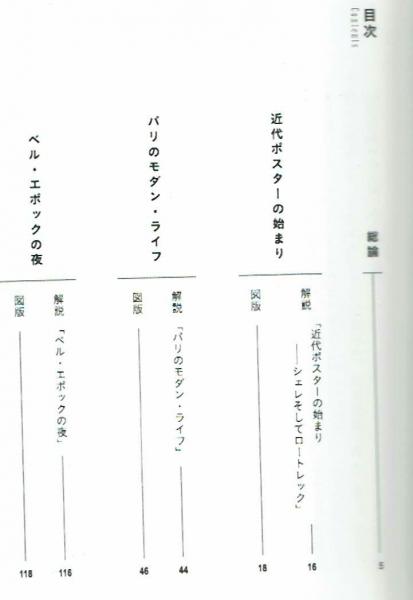 目次
Contents
総論 5
近代ポスターの始まり
解説 「近代ポスターの始まり
——シェレそしてロートレック」 16
図版 18
パリのモダン・ライフ
解説 「パリのモダン・ライフ」 44
図版 46
ベル・エポックの夜
解説 「ベル・エポックの夜」 116
図版 118